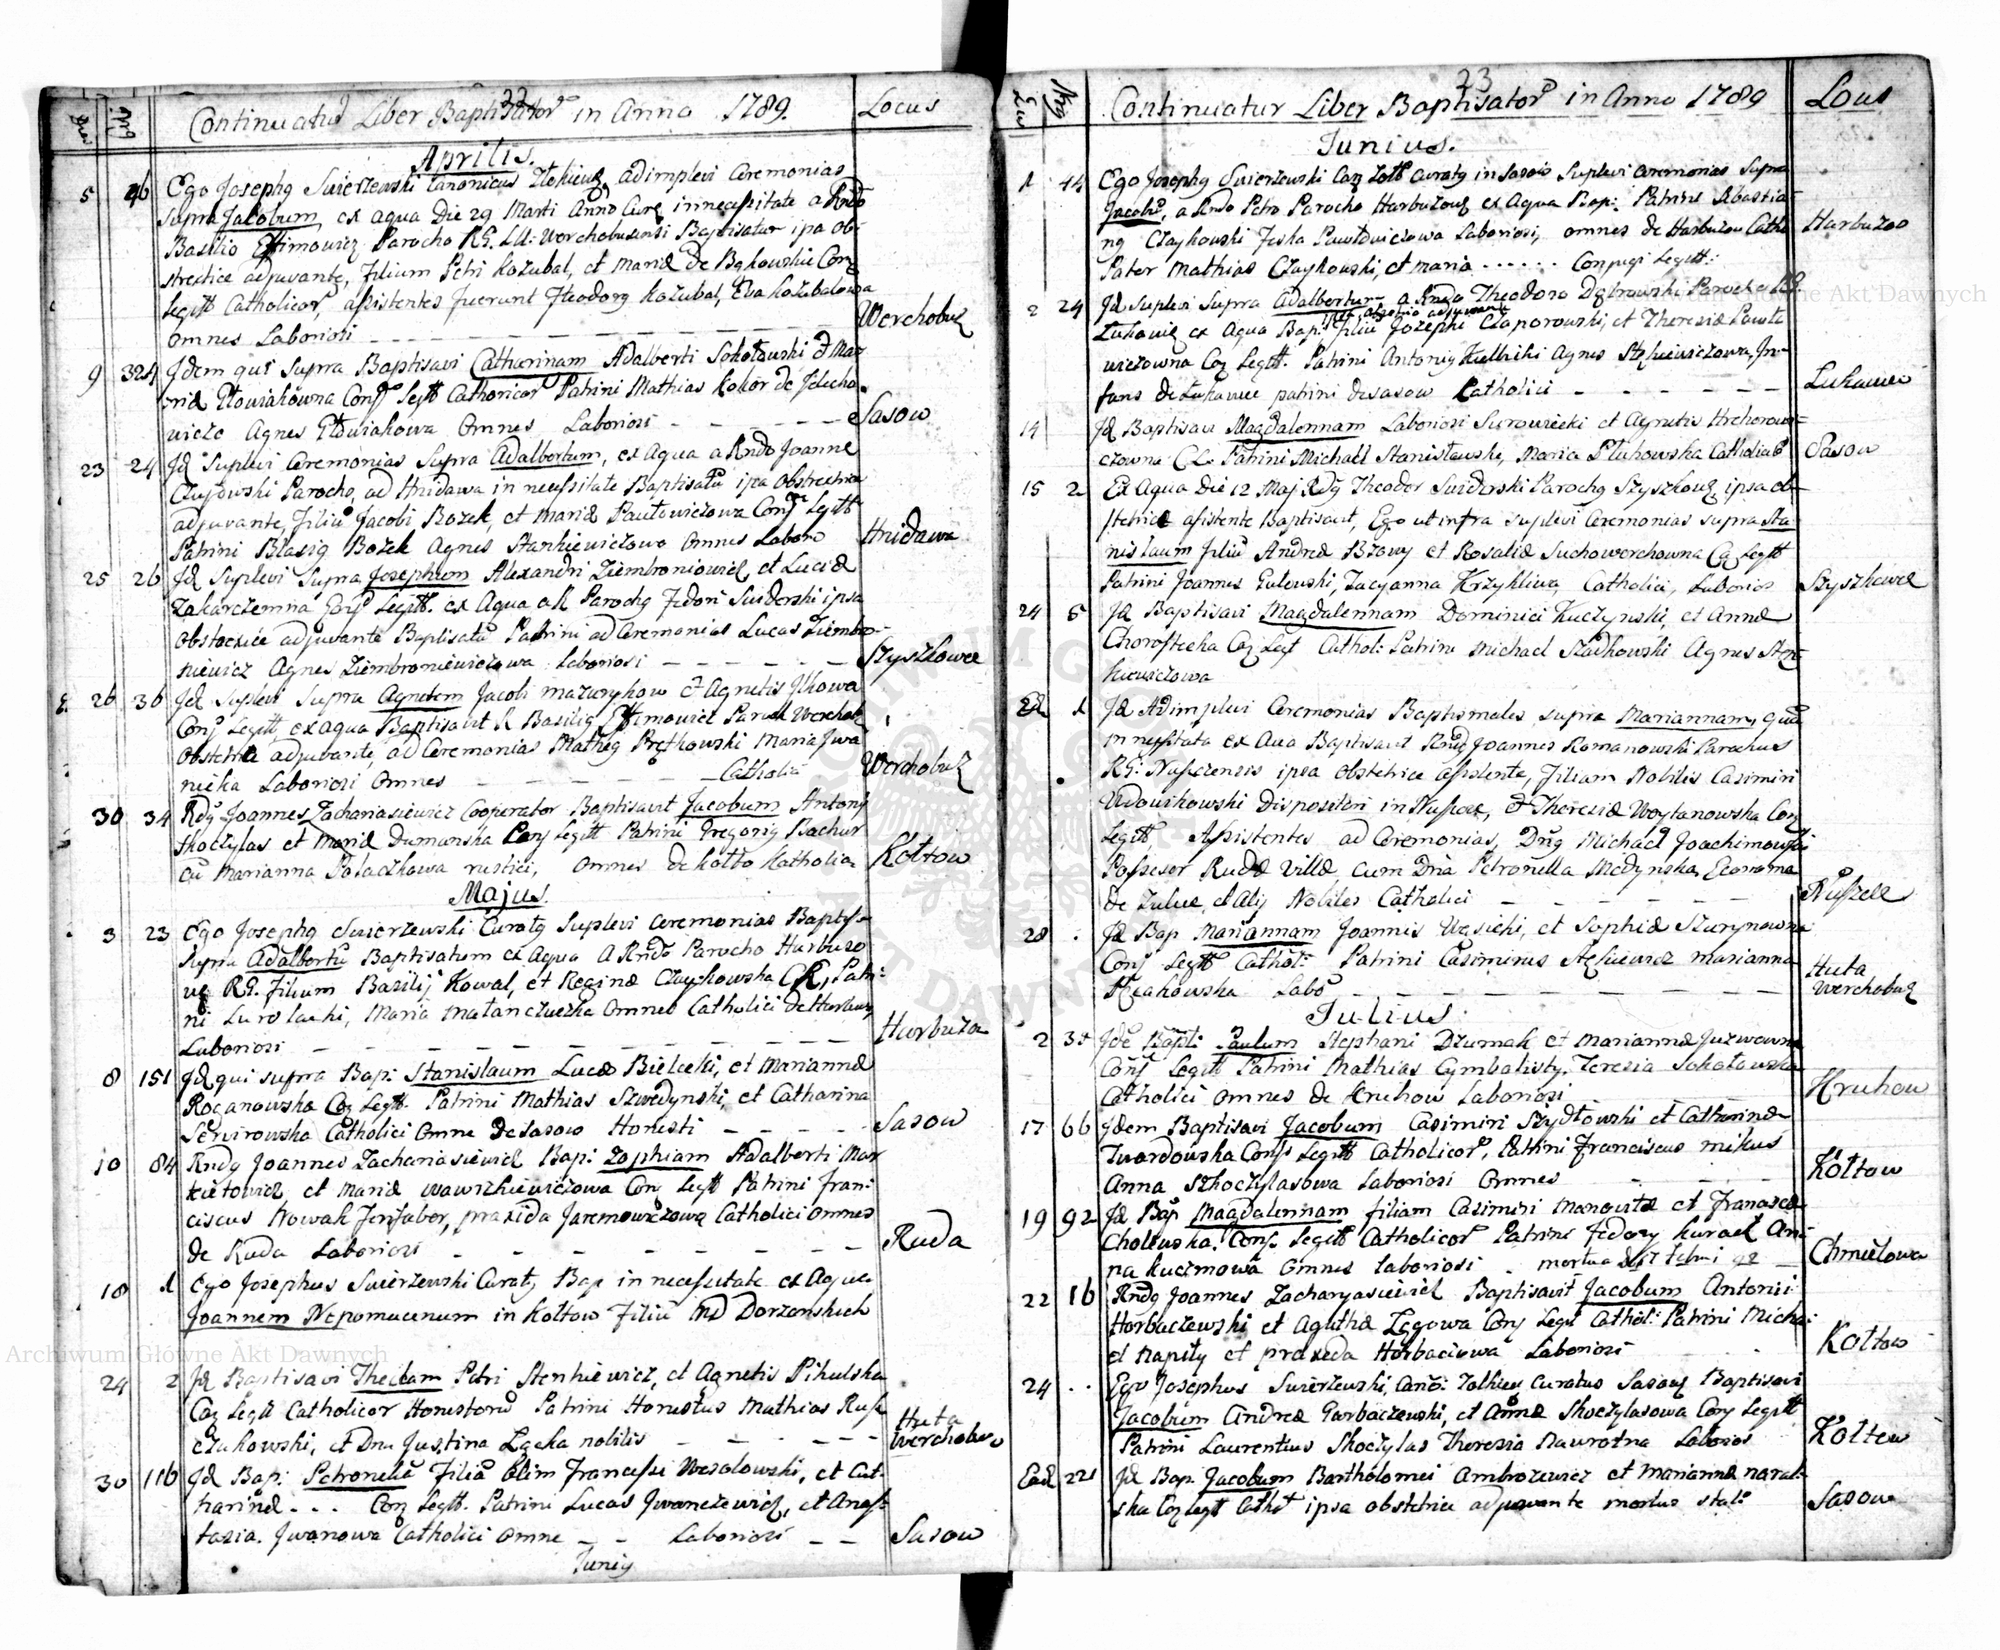 22
Continuatur Liber Baptisator in Anno 1789.
Locus
Aprilis.
5 46 Ego Josephq Swierzewski Canonicus Zlokiewz adimplevi Ceremonias
supra Jacobum, ex aqua Die 29 Marti Anno Cure in necessitate a Rndo
Basilio Effimowicz Parocho RG. Werchobusensi Baptisatur ipa ob-
stretice adjuvante, filium Petri Kozubal, et Mariæ de Bąkowskie Conz
legitt Catholicor, assistentes fuerunt Fteodorq Kozubal, Eva Kozubalowa
omnes Laboriosi Werchobuz
9 324 Jdem qui supra Baptisavi Catharinnam Adalberti Sokołowski et Ma-
riæ Głowiakowna Conj Legtt Catholicor Patrini Mathias Kokor de Jelecho-
wicze Agnes Głowiakowa Omnes Laboriosi Sasow
23 24 Jd Suplevi Ceremonias Supra Adalbertum, ex Aqua a Rndo Joanne
Parocho, ad Hnidawa in necessitate Baptisatu ipa Obstretrice
adjuvante, filiu Jacobi Bozek, et Mariæ Pawłowiczowa Conj Legitt
Patrini Blasiq Bozek Agnes Stankiewiczowa Omnes Laboro Hnidawa
25 26 Jd Suplevi Supra Josephum Alexandri Ziembroniewicz et Luciæ
Zakarczemna Conj Legitt. ex Aqua a R Parochq Fedori Swiderski ipsa
Obstetrice adjuvante Baptisatu Patrini ad Ceremonias Lucas Ziembro-
niewicz Agnes Ziembroniewiczowa Laboriosi Szyszkowce
26 36 Jd Suplevi Supra Agnetem Jacobi Mazurykow et Agnetis Jlkowa
Conj Legitt, ex aqua Baptisavit R Basiliq Effimowicz Paroch Werchob
Obstetrice adjuvante, ad Ceremonias Matheq Prętkowski Maria Jwa
nicka Laboriosi Omnes Catholici Werchobuz
30 34 Rdq Joannes Zachariasiewicz Cooperator Baptisavit Jacobum Antonj
Skoczylas et Mariæ Dumanska Conj Legitt Patrini Gregoriq Bachur
cu Marianna Palaczkowa rustici, omnes de Kotło Katholici Kołtow
Majus.
3 23 Ego Josephq Swierzewski Curatq Suplevi Ceremonias Baptis
supra Adalbertu Baptisatum ex Aqua A Rndo Parocho Harbuzo
vq RG. filium Basilij Kowal, et Reginæ Czaykowska CR, Patri-
ni Maria Omnes Catholici de Harbuz
Laboriosi Harbuza
8 151 Jd qui supra Bap: Stanislaum Lucæ Bielecki, et Mariannæ
Roganowska Conj Legtt. Patrini Mathias Szwedynski, et Catharina
Serwirowska Catholici Omne De Sasow Honesti Sasow
10 84 Rndq Joannes Zachariasiewicz Bap: Zophiam Adalberti Mar
kietowicz, et Mariæ Wawrzkiewiczowa Conj Legtt Patrini Fran-
ciscus Nowak praxida Jaremowiczowa Catholici Omnes
de Ruda Laboriosi Ruda
18 1 Ego Josephus Swierzewski Curatq Bap in necessitate ex Aqua
Joannem Nepomucenum in Kołtow Filiu MD Dorzanskich
24 2 Jd Baptisavi Theclam Petri Stenkiewicz, et Agnetis Pikulska
Conj Legtt Catholicor Honestoru Patrini Honestus Mathias Rusz
czakowski, et Dna Justina Łącka nobilis Huta Werchobuz
30 116 Jd Bap: Petronelle Filia Olim Francissi Wesolowski, et Cat-
harinæ ... Conj Legtt. Patrini Lucas Jwanczewicz, et Anas-
tazia Jwanowa Catholici Omne Laboriosi Sasow
Juniq
23
Continuatur Liber Baptisator in Anno 1789
Locus
Junius.
1 44 Ego Josephq Swierzewski Can Zołk Curatq in Sasow Suplevi Ceremonias Supra
Jacobu, a Rndo Petro Parocho Harbuzovz ex Aqua Bap: Patrini Sbastia-
nq Czaykowski Feska Pawłowiczowa Laboriosi, omnes de Harbuzow Catho
Pater Mathias Czaykowski, et Maria ...... Conjugi Legitt: Harbuzow
2 24 Jd Suplevi Supra Adalbertum a Rndo Theodoro Dąbrowski Parocho RG
Łukawiec ex Aqua Bap: filiu Josephi Czaporowski, et Theresiæ Pawło
wiczowna Conj Legitt. Patrini Antoniq Kulbiki Agnes Stękiewiczowa, In-
fans de Łukawiec patrini de Sasow Catholici Łukawiec
14 Jd Baptisavi Magdalennam Laboriosi Surowiecki et Agnetis Hrehorow-
czowna CL. Patrini Michael Stanislawski, Maria Plukowska Catholici Sasow
15 2 Ex Aqua Die 12 Maj Rdq Theodor Swiderski Parochq Szyszkovz, ipsa ob-
stetrice asistente Baptisavit, Ego ut infra Suplevi Ceremonias supra Sta
nislaum filiu Andreæ Bzowy et Rosaliæ Suchowerchowna Conj Legtt
Patrini Joannes Gulowski, Tacyanna Krzykliwa, Catholici, Laborios Szyszkowce
24 5 Jd Baptisavi Magdalennam Dominici Kuczynski, et Annæ
Chorostecka Conj Legt Cathol: Patrini Michael Szadkowski Agnes Sten
kiewiczowa
Ead 1 Jd Adimplevi Ceremonias Baptismales supra Mariannam, qua
in necessitate ex Aqua Baptisavit Rndq Joannes Romanowski Parochus
RG: Nusczensis ipsa Obstetrice assistente, filiam Nobilis Casimiri
Udowikowski Dispositori in Nuscze, et Theresiæ Woytanowska Conj
Legitt, Assistentes ad Ceremonias, Dnq Michael Joachimowski
Possessor Rudæ villæ, cum Dna Petronella Medynska, Economa
de Zulice, et Alij Nobiles Catholici Nuszcze
28 Jd Bap Mariannam Joannis Wąsicki, et Sophiæ Szurynowna
Conj Legtt Cathol: Patrini Casimirus Stęskiewicz Marianna
Labo Huta Werchobuz
Julius
2 35 Jde Bapti Paulum Stephani Dzumak et Mariannæ Juzwowna
Conj Legitt Patrini Mathias Cymbalisty, Teresia Sokołowska
Catholici omnes de Hruhow Laboriosi Hruhow
17 66 Jdem Baptisavi Jacobum Casimiri Szydłowski et Catharinæ
Twardowska Conj Legitt Catholicor, Patrini Franciscus Mikus
Anna Skoczylasowa Laboriosi Omnes Kołtow
19 92 Jd Bap Magdalennam filiam Casimiri Manowitæ et Francisca
Cholewska, Conj. Legitt Catholicor Patrini Fedory Kurael An-
na Kuczmowa Omnes Laboriosi . mortua Chmielowa
22 16 Rndq Joannes Zacharyasiewicz Baptisavit Jacobum Antonii
Horbaczewski et Agathæ Zęgowa Conj Legit Cathol: Patrini Micha-
el Napity et praxeda Horbaczowa Laboriosi Kołtow
24 .. Ego Josephus Swierzewski, Cano: Zolkiew Curatus Sasovz Baptisavi
Jacobum Andreæ Garbaczewski, et Annæ Skoczylasowa Conj Legitt
Patrini Laurentius Skoczylas Theresia Nawrotna Laborios Kołtow
Ead 221 Jd Bap: Jacobum Bartholomei Ambrozewicz et Mariannæ Naral-
ska Conj Legtt Cathol ipsa obstetrice adjuvante mortuo statt Sasow
Archiwum Główne Akt Dawnych
Główne Akt Dawnych